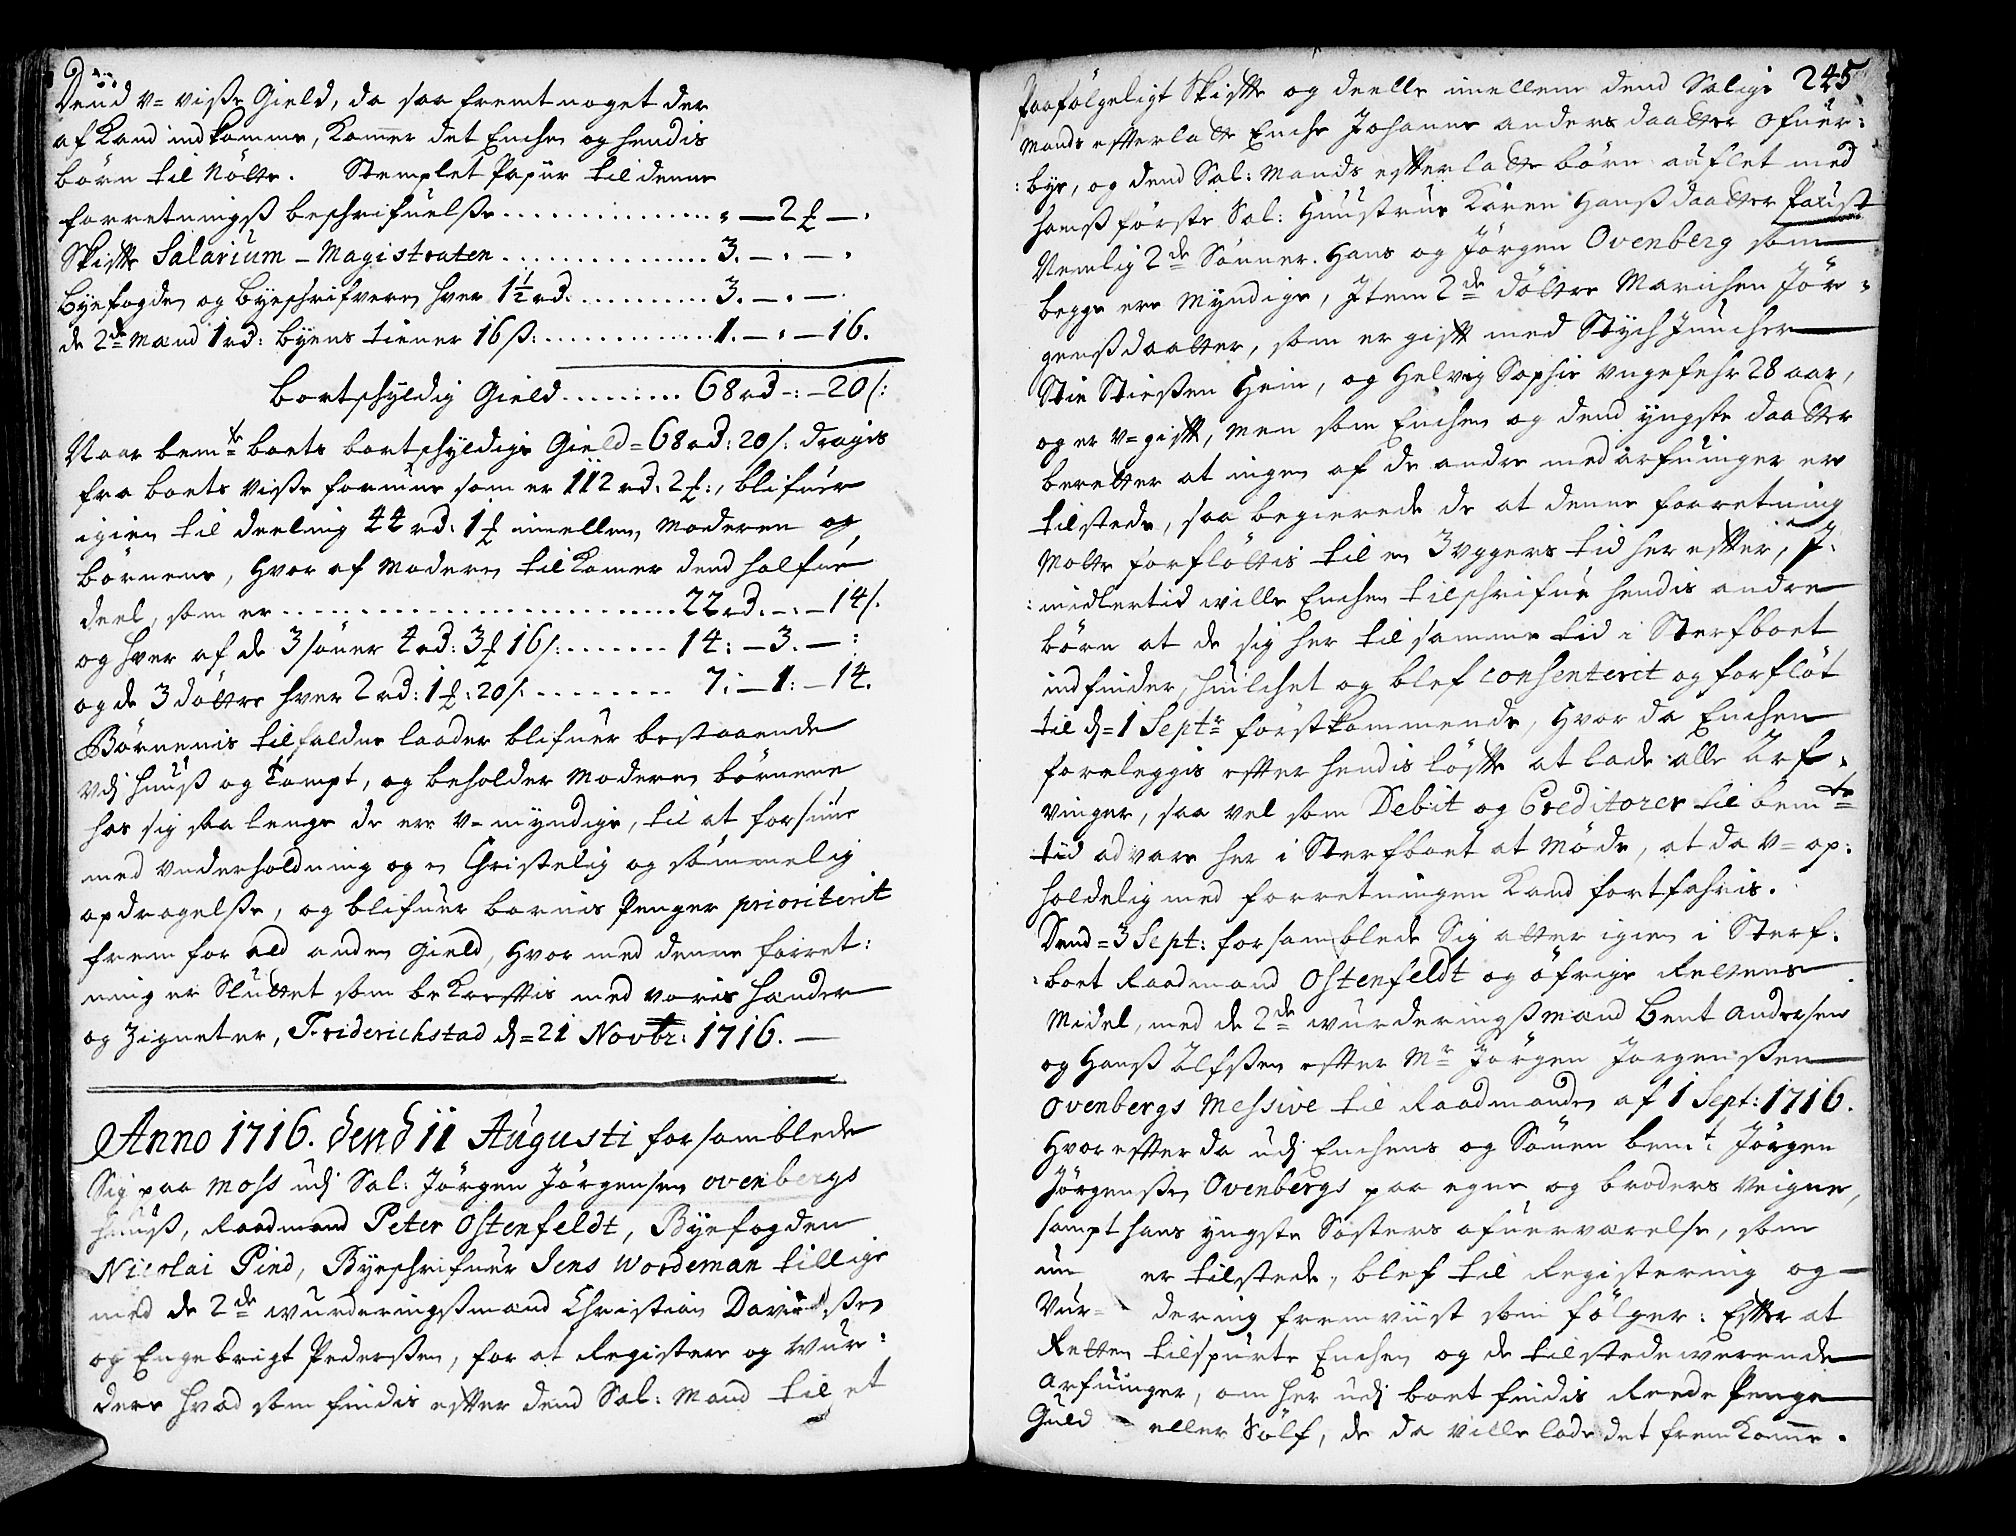 Dend v= visse Gield, da saa fremt noget der
af Kand indkomme, Kommer det Enchen og hendis
börn til Nötte. Stemplet Papiir til denne
forretningß beschrifuelße . . . . . . „ — 2 ƒ — .
Skifte Salarium – Magistraten . . . . . . 3. — . — .
Byefogden og Byeschrifveren hver 1½ rd. . . . . . . 3. — . — .
de 2de Mænd 1 rd: byens tiener 16 ß: . . . . . . 1. — . — 16.
bortschyldig Gield . . . . . . 68 rd -: — 20 /:
Naar bemte boets bortschyldige Gield = 68 rd: 20 /: dragis
fra boets visse formue som er 112 rd: 2 ƒ:, blifuer
igien til deeling 44 rd: 1 ƒ imellem Moderen og
börnene, hvor af Moderen tilkomer dend halfue
deel, som er . . . . . . 22 rd. — : — 14 /.
og hver af de 3 söner 4 rd: 3 ƒ 16 /: . . . . . . 14: — 3. — :
og de 3 döttre hver 2 rd: 1 ƒ: 20 /: . . . . . . 7: — 1: — 14.
Börnenis tilfaldne laader blifuer bestaaende
udj huuß og Tompt, og beholder Moderen börnene
hos sig saa lenge de ere v= myndige, til at forsiune
med Underholdning og en Christelig og sömmelig
opdragelße, og blifuer bornis Penger prioriterit
frem for ald anden Gield, hvor med denne forret:
ning er Sluttet som bekreftis med voris hænder
og Zigneter, Friderichstad d= 21 Novbr: 1716. —
Anno 1716. dend 11 Augusti forsamblede
Sig paa Moss udj Sal: Jörgen Jörgensen Ovenbergs
huuß, Raadmand Peter Ostenfeldt, Byefogden
Nicolai Pind, Byeschrifuer Jens Wordeman tillige
med de 2de wurderingßmænd Christian Davidßen
og Engebrigt Pederßen, for at Registere og Wur:
dere hvad som findis efter dend Sal: Mand til et
245
Paafölgeligt Skifte og deelle imellem dend Salige
Mands efterlatte Enche Johanne anders daatter Ofuer:
:bye, og dend Sal: Mands efterlatte börn auflet med
hanß förste Sal: Huustrue Karen Hanßdaatter Faust
Nemlig 2de Sönner. Hans og Jörgen Ovenberg som
begge ere Myndige, Item 2de döttre Marichen Jör:
genßdaatter, som er gift med Stych Juncher
Stie Stießen Hein, og Helvig Sophie ungefehr 28 aar,
og er v=gift, men som Enchen og dend yngste daatter
beretter at ingen af de andre medarfuinger er
tilstede, saa begierede de at denne forretning
Motte forflöttis til en 3 uggers tid her efter, I.
:midlertid wille Enchen tilschrifue hendis andre
börn at de sig her til samme tid i Sterfboet
indfinder, huilchet og blef Consenterit og forflöt
til d= 1 Septr förstkommende, hvor da Enchen
foreleggis efter hendis löfte at lade alle Arf:
vinger, saa vel som Debit og Creditorer til bemte
tiid advare her i Sterfboet at Möde, at da v= op:
holdelig med forretningen Kand fortfahris.
Dend = 3 Sept: forsamblede Sig atter igien i Sterf:
:boet Raadmand Ostenfeldt og öfrige Rettens
Midel, med de 2de wurderingßmænd Bent Andersen
og Hanß Ulfßen efter Mr Jörgen Jorgenßen
Ovenbergs Messive til Raadmanden af 1 Sept: 1716.
Hvorefter da udj Enchens og Sönen bemt: Jörgen
Jörgenßen Ovenbergs paa egne og broders veigne,
sampt hans yngste Sösters ofuerværelse, som
nu er tilstede, blef til Registering og
Vur- dering fremviist som fölger: Efter at
Retten tilspurte Enchen og de tilstedewerende
Arfuinger, om her udj boet findis Reede Penge
Guld eller Sölf, de da ville lade det fremkomme.